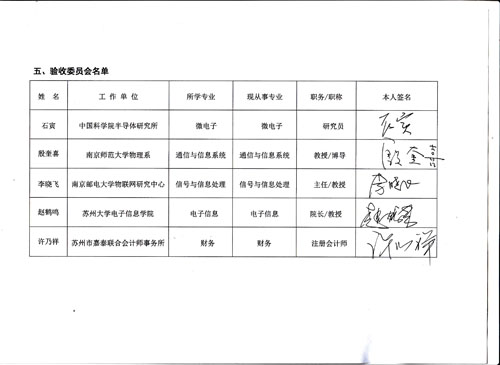 五、验收委员会名单
姓 名 工 作 单 位 所学专业 现从事专业 职务/职称 本人签名
石寅 中国科学院半导体研究所 微电子 微电子 研究员 石寅
殷奎喜 南京师范大学物理系 通信与信息系统 通信与信息系统 教授/博导 殷奎喜
李晓飞 南京邮电大学物联网研究中心 信号与信息处理 信号与信息处理 主任/教授 李晓飞
赵鹤鸣 苏州大学电子信息学院 电子信息 电子信息 院长/教授 赵鹤鸣
许乃祥 苏州市嘉泰联合会计师事务所 财务 财务 注册会计师 许乃祥